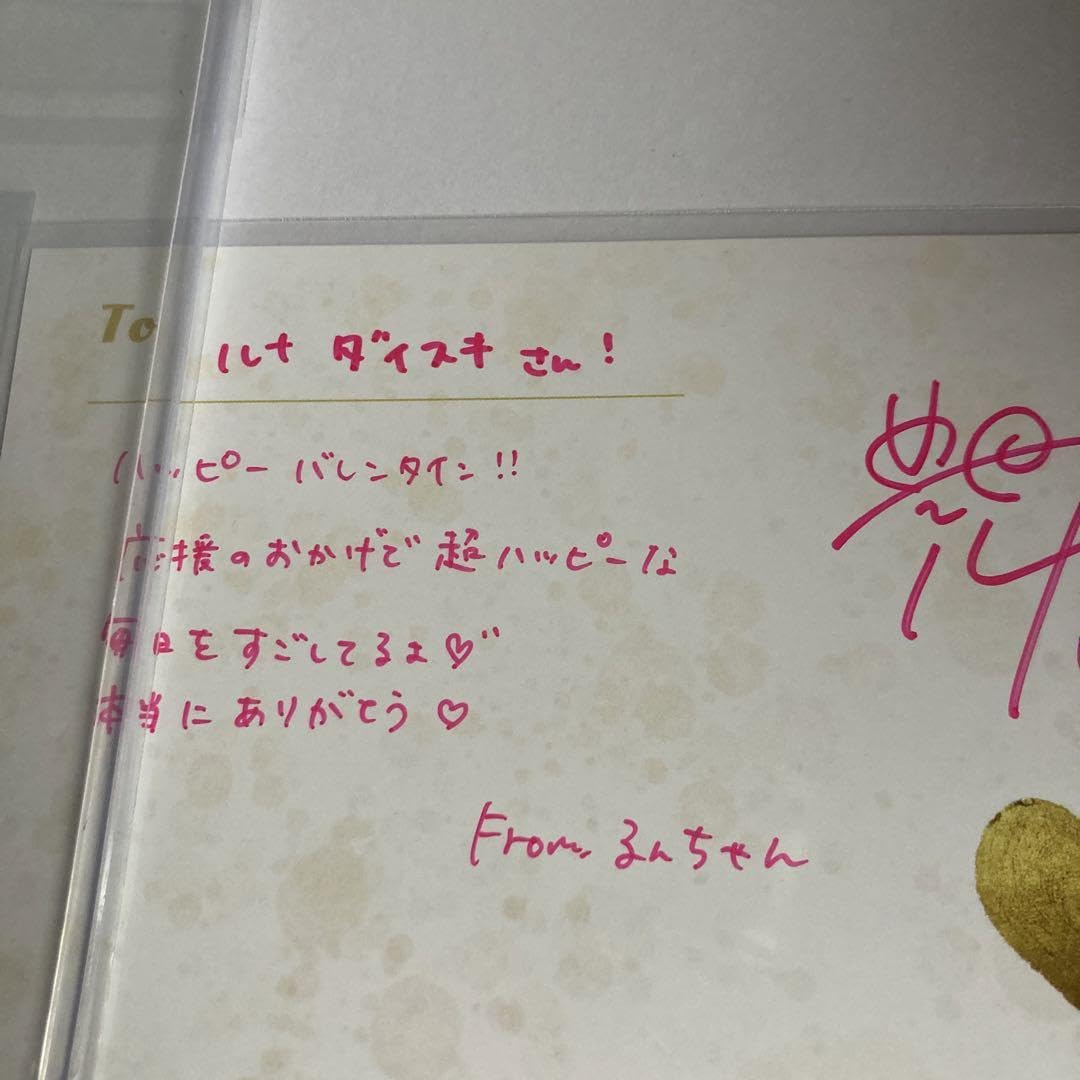 To
ルナ ダイスキ さん!
ハッピー バレンタイン!!
応援のおかげで 超ハッピーな
毎日をすごしてるよ♡"
本当に ありがとう♡
From るんちゃん